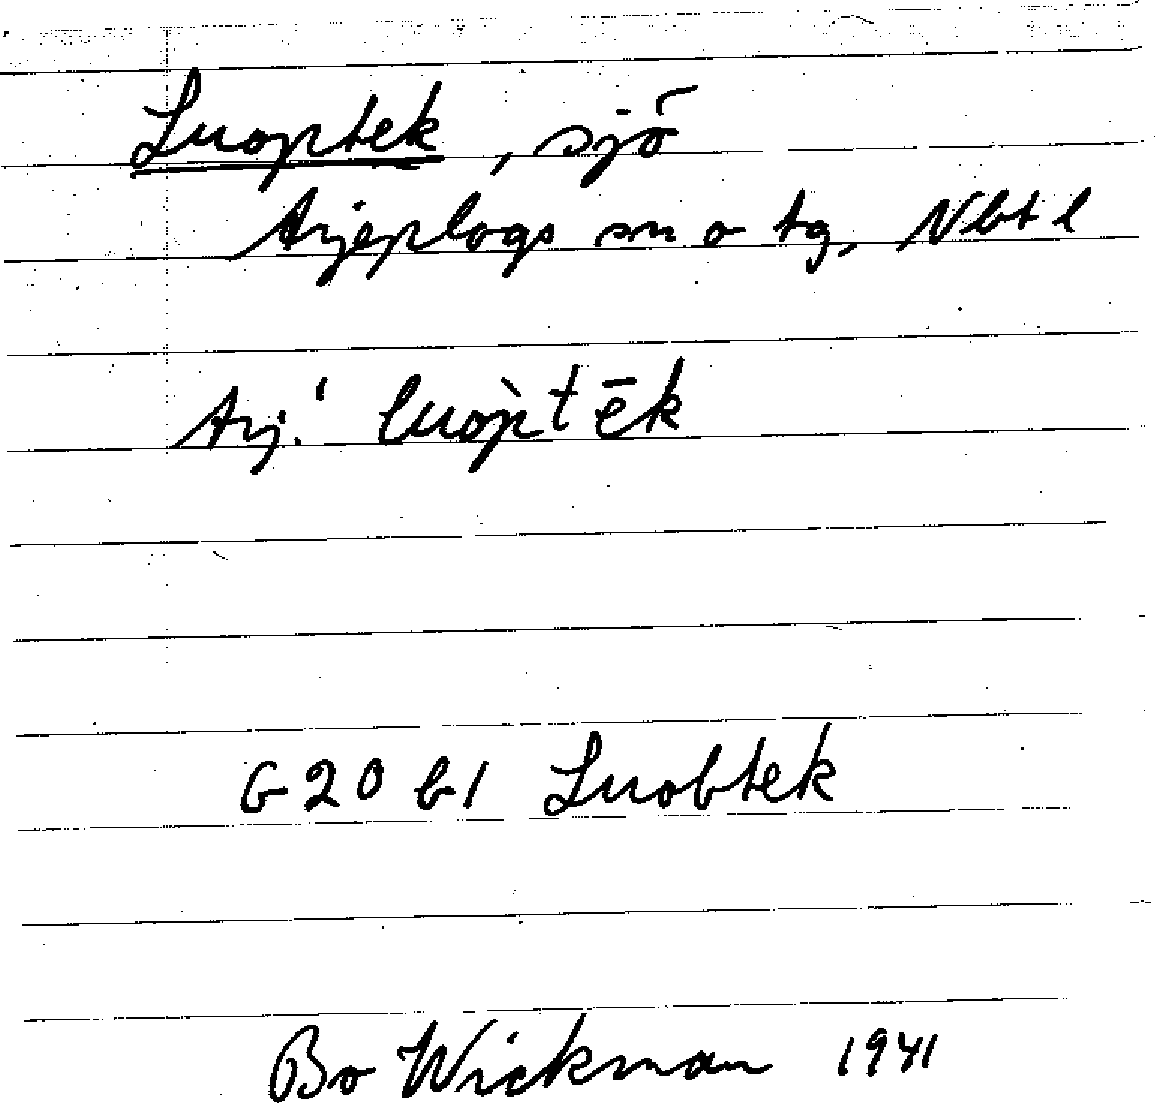 Luoptek, sjö
Arjeplogs sn o tg, Nbt l
Arj. ' luòptēk
G 20 b1 Luobtek
Bo Wickman 1941